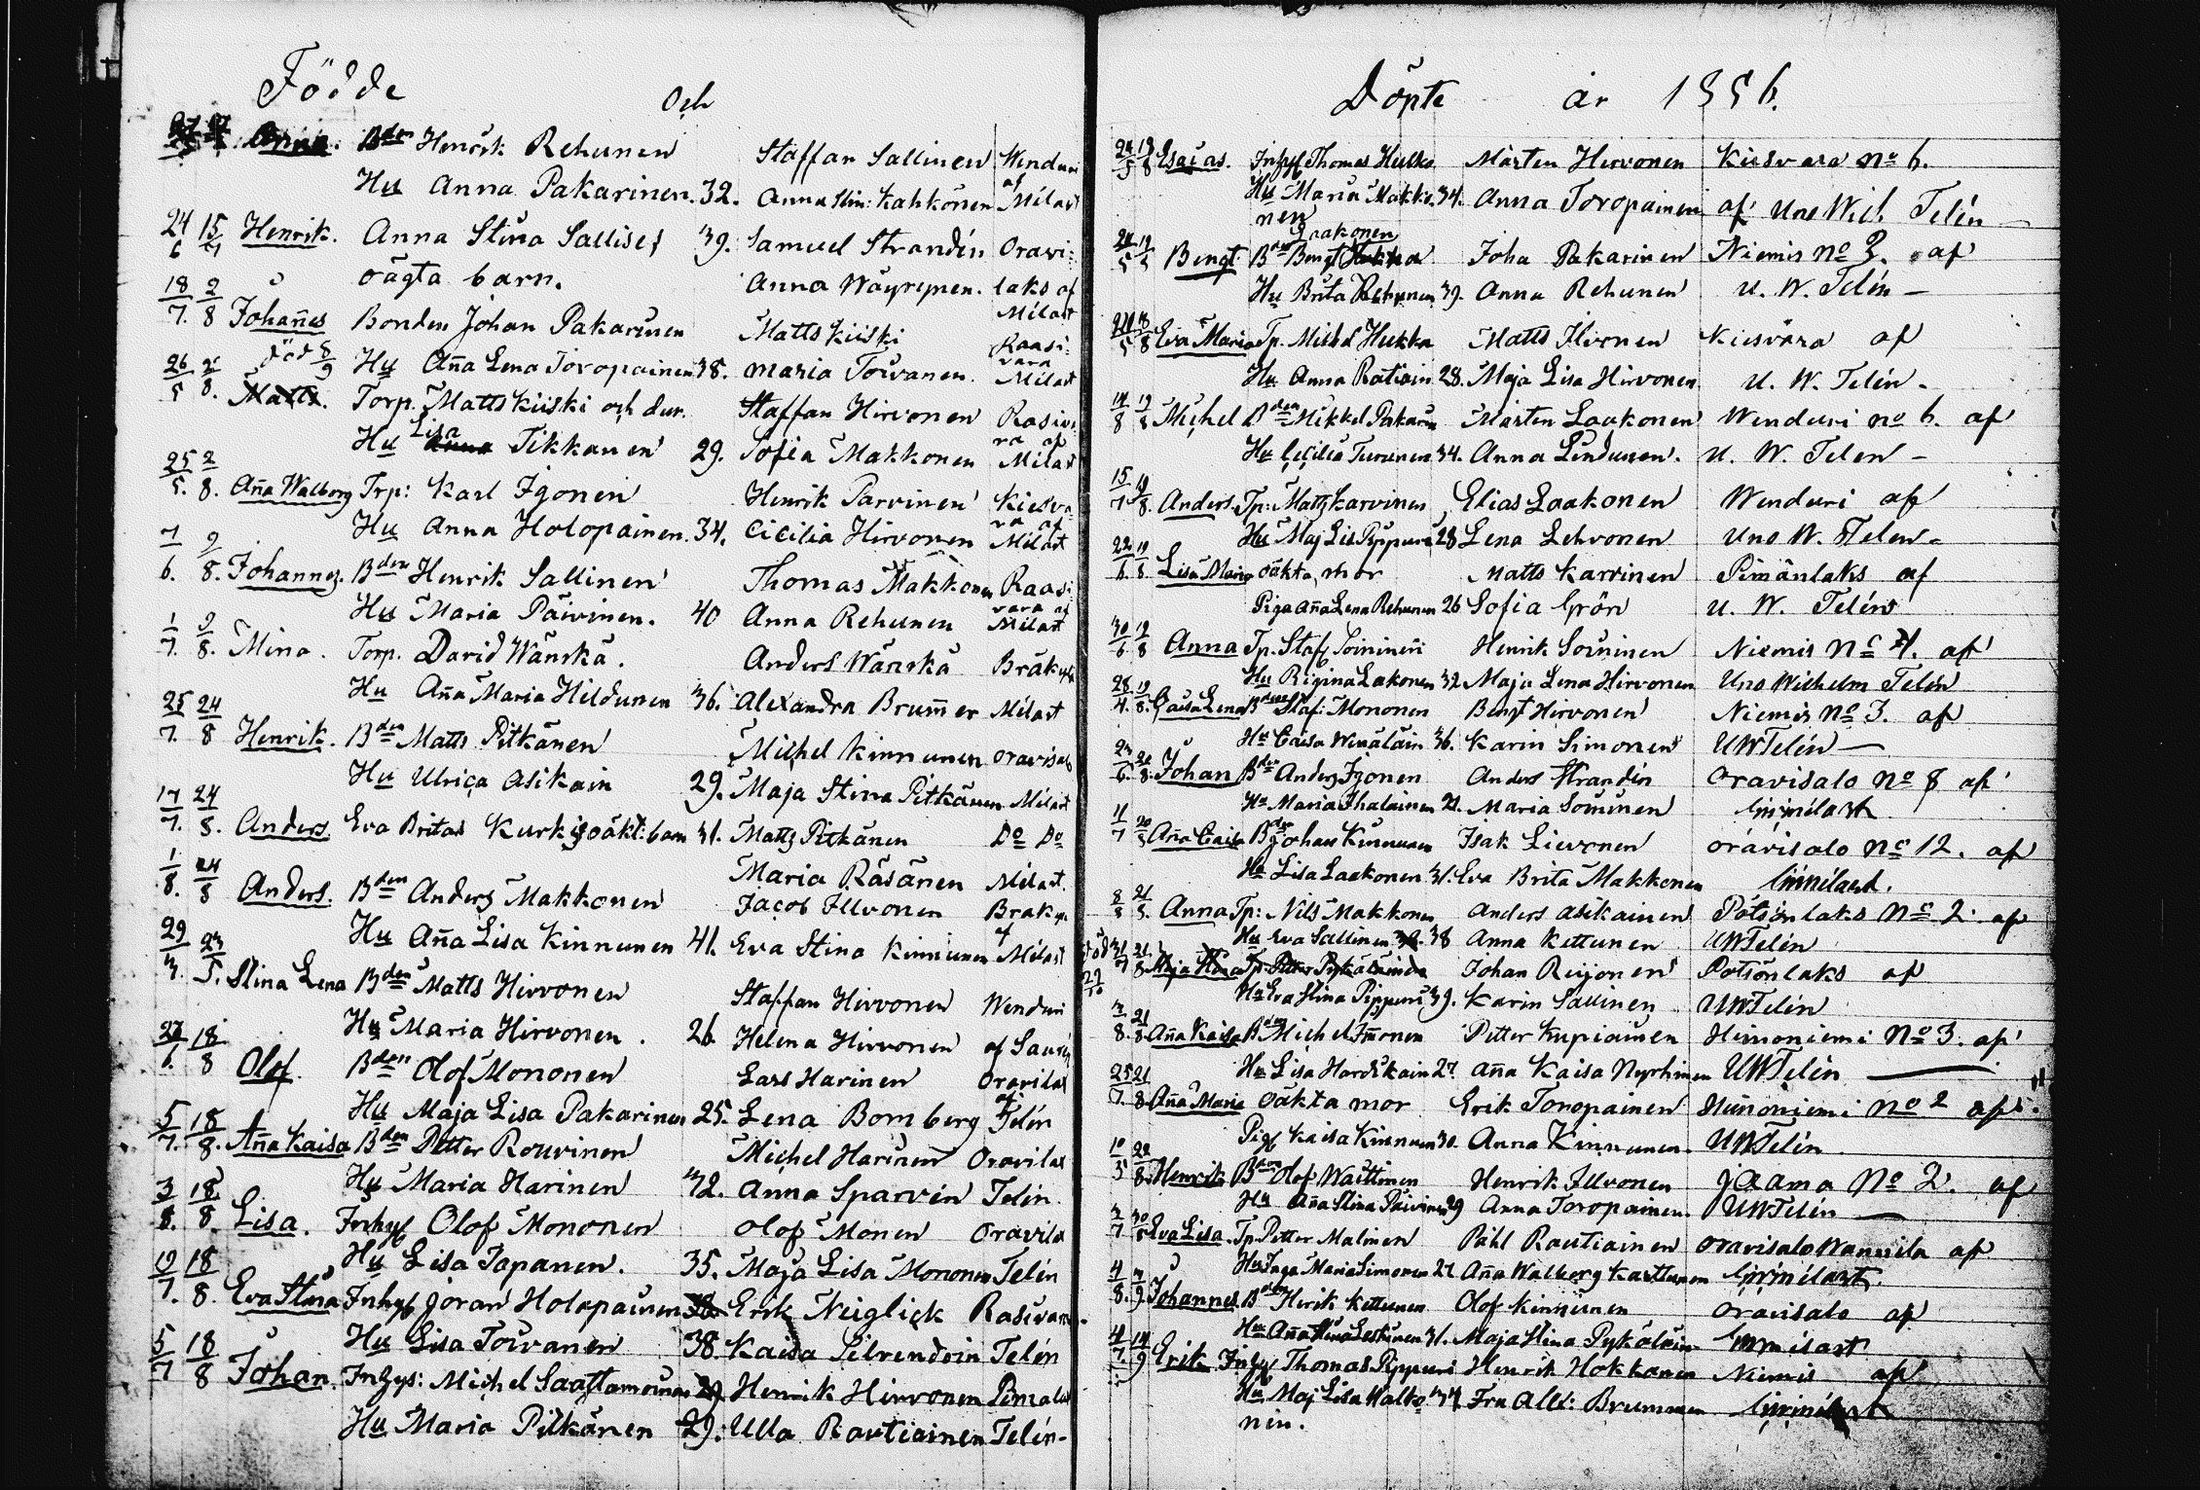 Födde och
Anna. Bden Henrik Rehunen Staffan Sallinen Wenduri
Hu Anna Pakarinen. 32. Anna Stin: Kahkönen af Milast
24/6 15/7 Henrik. Anna Stina Sallises 39. Samuel Strandén Oravi:
oägta barn. Anna Wäyrynen. laks af Milast
18/7. 2/8 Johañes Bonden Johan Pakarinen Matts Kiiski Raasi:
död 8/9 Hu Aña Lena Toropainen 38. Maria Toivanen. vara Milast
26/5 2/8. Matts. Torp. Matts Kiiski och dur. Staffan Hirvonen Rasiva
Hu Lisa Tikkanen 29. Sofia Makkonen ra af Milast
25/5. 2/8. Aña Walborg Trp: Karl Igonen Henrik Parvinen Kiesva
Hu Anna Holopainen. 34. Cicilia Hirvonen ra af Milast
7/6. 9/8. Johannes. Bden Henrik Sallinen Thomas Makkonen Raasi
Hu Maria Päivinen. 40 Anna Rehunen vara af Milast
1/7. 9/8. Mina. Torp. David Wänskä. Anders Wänskä Bräkylä
Hu Aña Maria Hildunen 36. Alexandra Brum̃er Milast
25/7. 24/8 Henrik. Bden Matts Pitkänen Michel Kinnunen Oravisalo
Hu Ulrica Asikain 29. Maja Stina Pitkänen Milast
17/7. 24/8. Anders. Eva Britas Kurkis oäkt: barn 31. Matts Pitkänen Do Do
1/8. 24/8 Anders. Bden Anders Makkonen Maria Räsänen Milast.
Jacob Illvonen Brakyl
29/3. 23/5. Hu Aña Lisa Kinnunen 41. Eva Stina Kinnunen af Milast
Stina Lena Bden Matts Hirvonen Staffan Hirvonen Wenduri
Hu Maria Hirvonen. 26. Helena Hirvonen af
27/6. 18/8 Olof. Bden Olof Mononen Lars Harinen Oravilax
Hu Maja Lisa Pakarinen 25. Lena Bomberg af Telén
5/7. 18/8. Aña Kaisa Bden Petter Rouvinen Michel Harinen Oravilax
Hu Maria Harinen 32. Anna Sparvin Telén
3/8. 18/8. Lisa. Inhys Olof Mononen Olof Monen Oravilax
Hu Lisa Tapanen. 35. Maja Lisa Mononen Telén
19/7. 18/8. Eva Stina Inhys Jöran Holopainen Erik Neiglick Rasivara
Hu Lisa Toivanen 38. Kaisa Silvendoin Telén
5/7 18/8 Johan. Inhys: Michel Saastamoinen Henrik Hirvonen
Hu Maria Pitkänen 29. Ulla Rautiainen Telén-
Döpte år 1856.
24/5 19/8 Esaias. Inhys Thomas Hukka Mårten Hirvonen Kiesvara No 6.
Hu Maria Makko 34. Anna Toropainen af Uno Wilh. Telén
nen
24/5 19/8 Bengt Bden Bengt Laakonen Joha Pakarinen Niemis No 3. af
Hu Brita Rehunen 39. Anna Rehunen U. W. Telén-
Eva Maria Tp. Michel Hukka Matts Ilvonen Kiesvära af
Hu Anna Ratiain 28. Maja Lisa Hirvonen U. W. Telén-
14/8 19/8 Michel Bden Mikkel Pakarin Mårten Laakonen Wenduri No 6. af
Hu Cecilia Turunen 34. Anna Lindunen. U. W. Telen-
15/7 19/8. Anders. Tp: Matts Karvinen Elias Laakonen Wenduri af
Hu Maj Lis Pippuri 28 Lena Lehvonen Uno W. Telen-
22/6 19/8 Lisa Maria oäkta, mor Matts Karvinen Pimänlaks af
Piga Aña Lena Rehunen 26 Sofia Grön U. W. Telén
30/6 19/8 Anna Tp. Staf. Soininen Henrik Soininen Niemis No 4. af
Hu Regina Lakonen 32. Maja Lena Hirvonen Uno Wilhelm Telén
28/4. 19/8. Caisa Lena Bden Staf: Mononen Bengt Hirvonen Niemis No 3. af
Hu Caisa Wenäläin 36. Karin Simonen UWTelén-
23/6. 20/8. Johan Bden Anders Igonen Anders Strandén Oravisalo No 8 af
Hu Maria Ihalainen 21. Maria Soininen
11/7 20/8 Aña Caisa Bden Johan Kinnunen Isak Lievonen Oravisalo No 12. af
Hu Lisa Laakonen 31. Eva Brita Makkonen
8/8 21/8. Anna Tp: Nils Makkonen Anders Asikainen Potsönlaks No 2. af
Hu Eva Sallinen 38 Anna Kettunen UWTelén
död 31/7 21/8 Maja Stina Tp. Petter Pykäläinen Johan Reijonen Potsönlaks af
Hu Eva Stina Pippuri 39. Karin Sallinen UWTelén
8. 21/8 Aña Kaisa Bden Michel Im̃onen Petter Kupiainen Heinoniemi No 3. af
Hu Lisa Hordikain 27. Aña Kaisa Nyrhinen UWTelén
25/7. 21/8 Aña Maria oäkta mor Erik Toropainen Heinoniemi No 2 af
Pig Kaisa Kinnunen 30. Anna Kinnunen. UWTelén.
10/5 22/8 Henrik Bden Olof Waittinen Henrik Illvonen Jaama No 2. af
Hu Aña Stina Päivinen 29 Anna Toropainen. UWTelén
Eva Lisa. Tp. Petter Malinen Påhl Rautiainen Oravisalo af
Hu Inga Maria Simonen 27. Aña Walborg Karttunen
Johannes Bden Henrik Kettunen Olof Kinnunen Oravisalo af
Hu Aña Stina Leskinen 31. Maja Stina Pykäläin
Erik Inhys Thomas Pippuri Henrik Hokkanen Niemis af
Hu Maj Lisa Walko 34. Fru Alex: Brummer
nen.